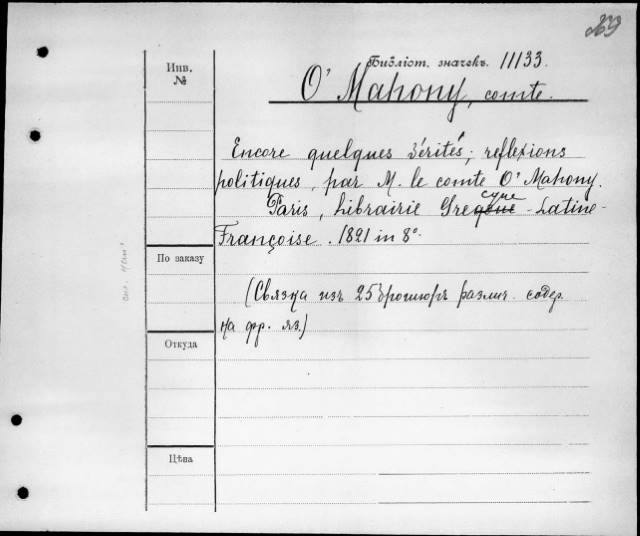 Инв.
№
Библіот. значекъ. 11133.
O' Mahony, comte.
Encore quelques vérités; reflexions
politiques, par M. le comte O' Mahony.
Paris, Librairie Grecque - Latine -
Françoise. 1821 in 8°.
По заказу
(Связка изъ 25 брошюръ различ. содер.
на фр. яз.)
Откуда
Цѣна